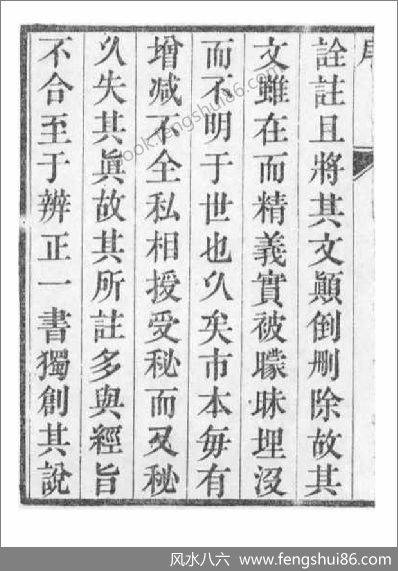 詮註且將其文顛倒删除故其
文雖在而精義實被矇昧埋沒
而不明于世也久矣市本毎有
增减不全私相授受秘而又秘
久失其眞故其所註多與經旨
不合至于辨正一書獨創其說
book.fengshui86.com
风水八六 www.fengshui86.com